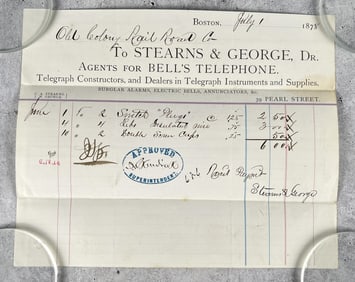 BOSTON, July 1 187
Old Colony Rail Road Co
To STEARNS & GEORGE, DR.
AGENTS FOR BELL'S TELEPHONE.
Telegraph Constructors, and Dealers in Telegraph Instruments and Supplies.
BURGLAR ALARMS, ELECTRIC BELLS, ANNUNCIATORS, &c.
79 PEARL STREET.
June 1 To 2 Switch Plugs 125 2 50
" " 4 Insulated wire 75 3 00
10 " 2 .25 50
6 00
APPROVED
SUPERINTENDENT.
Rec'd Payment
Stearns & George